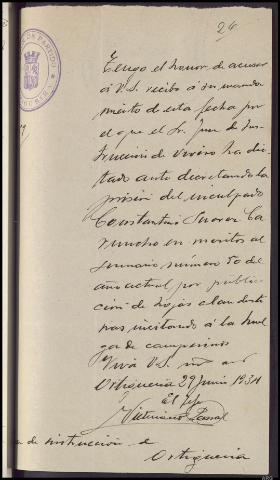 24
Tengo el honor de acusar
á V.S. recibo á su manda
miento de esta fecha por
el que el Sr. Juez de Ins
trucción de Vivero ha dic
tado auto decretando la
prisión del inculpado
Constantino Suarez Ca
rruncho en meritos al
sumario número 50 del
año actual por publica
ción de hojas clandesti
nas incitando á la huel
ga de campesinos
Viva V.S. m. a.
Ortigueira 29 Junio 1934
El Jefe
Victoriano
de instrucción de
Ortigueira